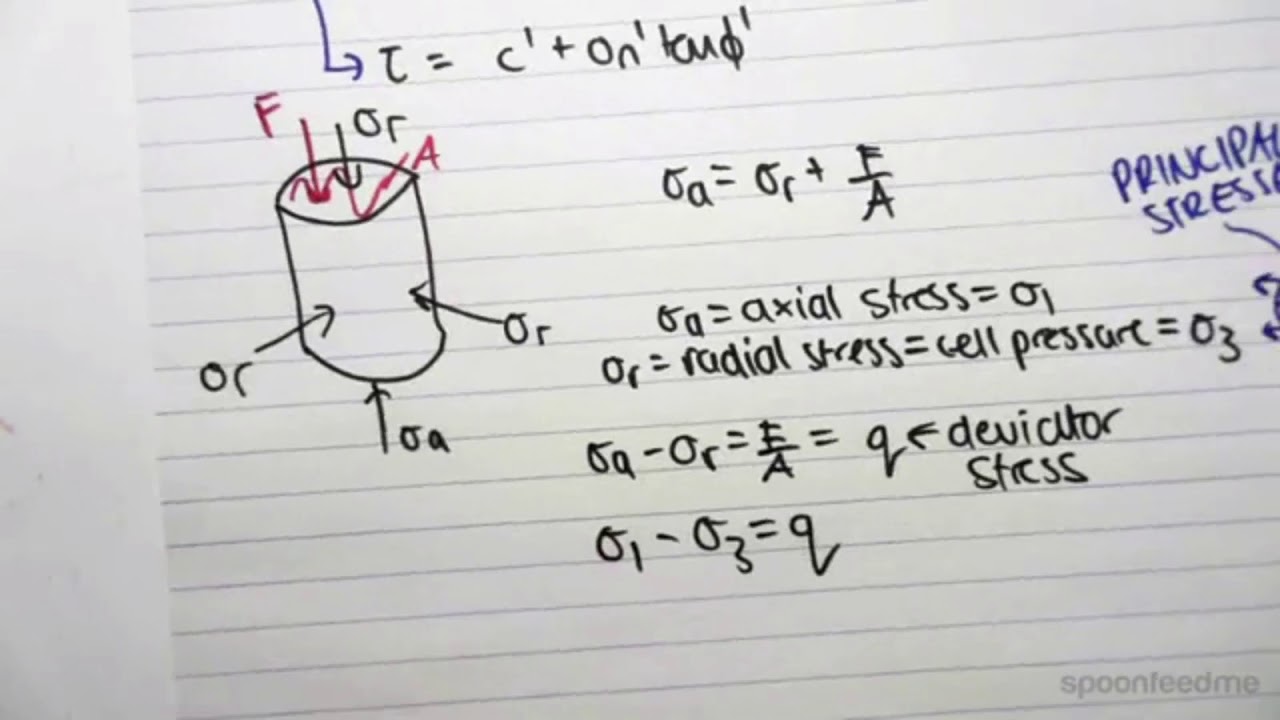 τ = c' + σn' tanϕ'
F
σr
A
σa = σr + F/A
PRINCIPAL
STRESS
σa = axial stress = σ1
σr = radial stress = cell pressure = σ3
σr
σr
σa
σa - σr = F/A = q ← deviator
stress
σ1 - σ3 = q
spoonfeedme